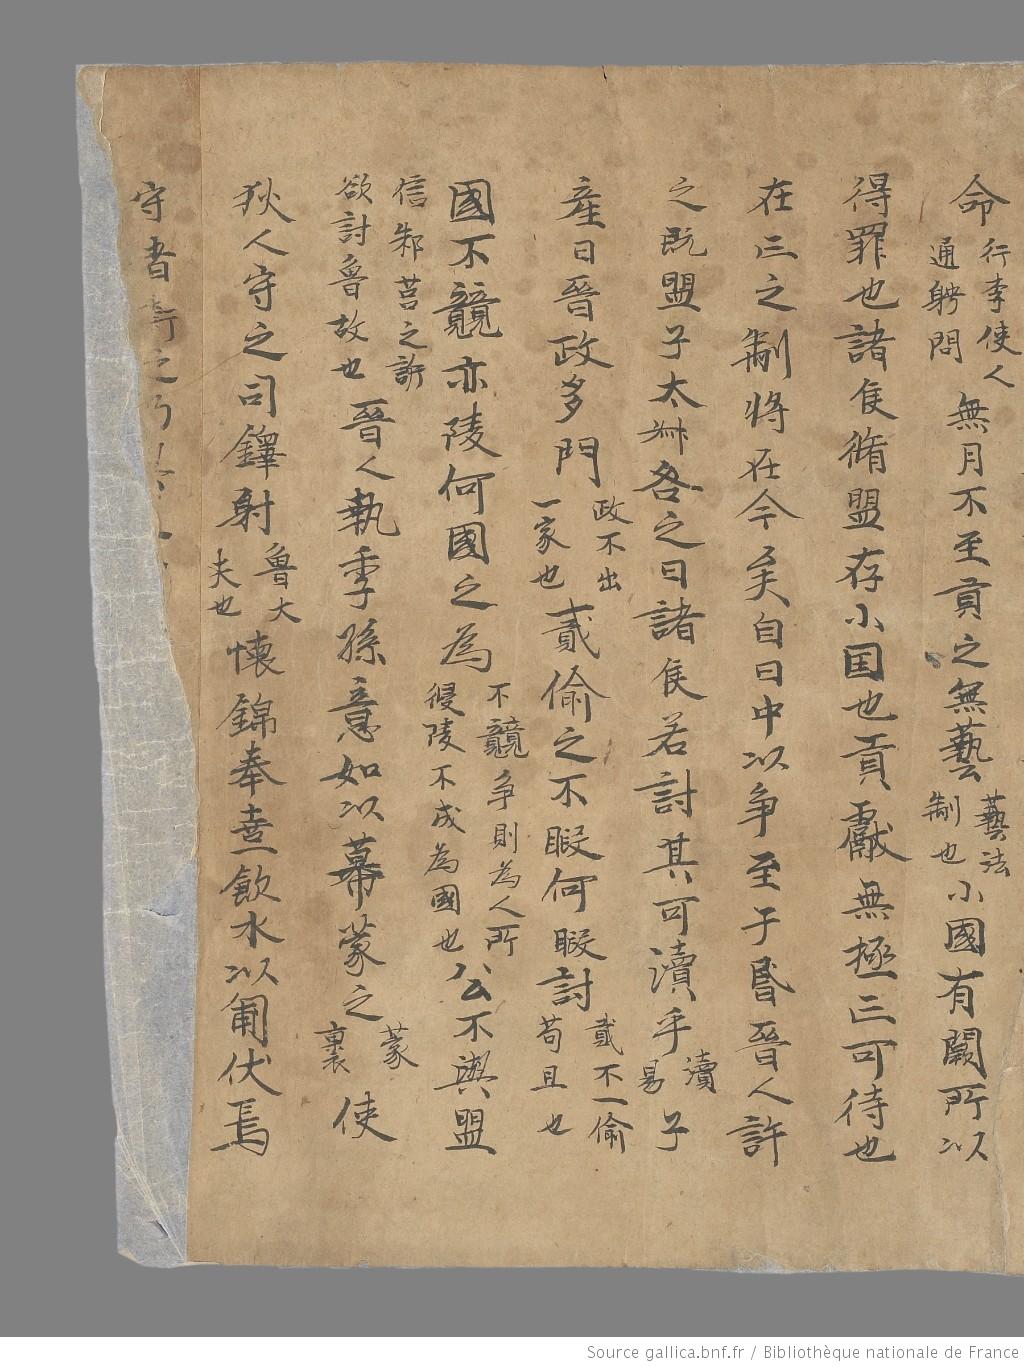 命行李使人通聘問無月不至貢之無藝藝法制也小國有闕所以
得罪也諸侯脩盟存小国也貢獻無極亡可待也
在亡之制將在今矣自日中以爭至于昬晉人許
之既盟子太叔咎之曰諸侯若討其可瀆乎瀆易子
産曰晉政多門政不出一家也貳偷之不暇何暇討貳不一偷苟且也
國不競亦陵何國之為不競争則為人所侵陵不成為國也公不與盟
信邾莒之訴欲討魯故也晉人執季孫意如以幕蒙之蒙裹使
狄人守之司鐸射魯大夫也懷錦奉壺飲水以匍伏焉
守者之
Source gallica.bnf.fr / Bibliothèque nationale de France